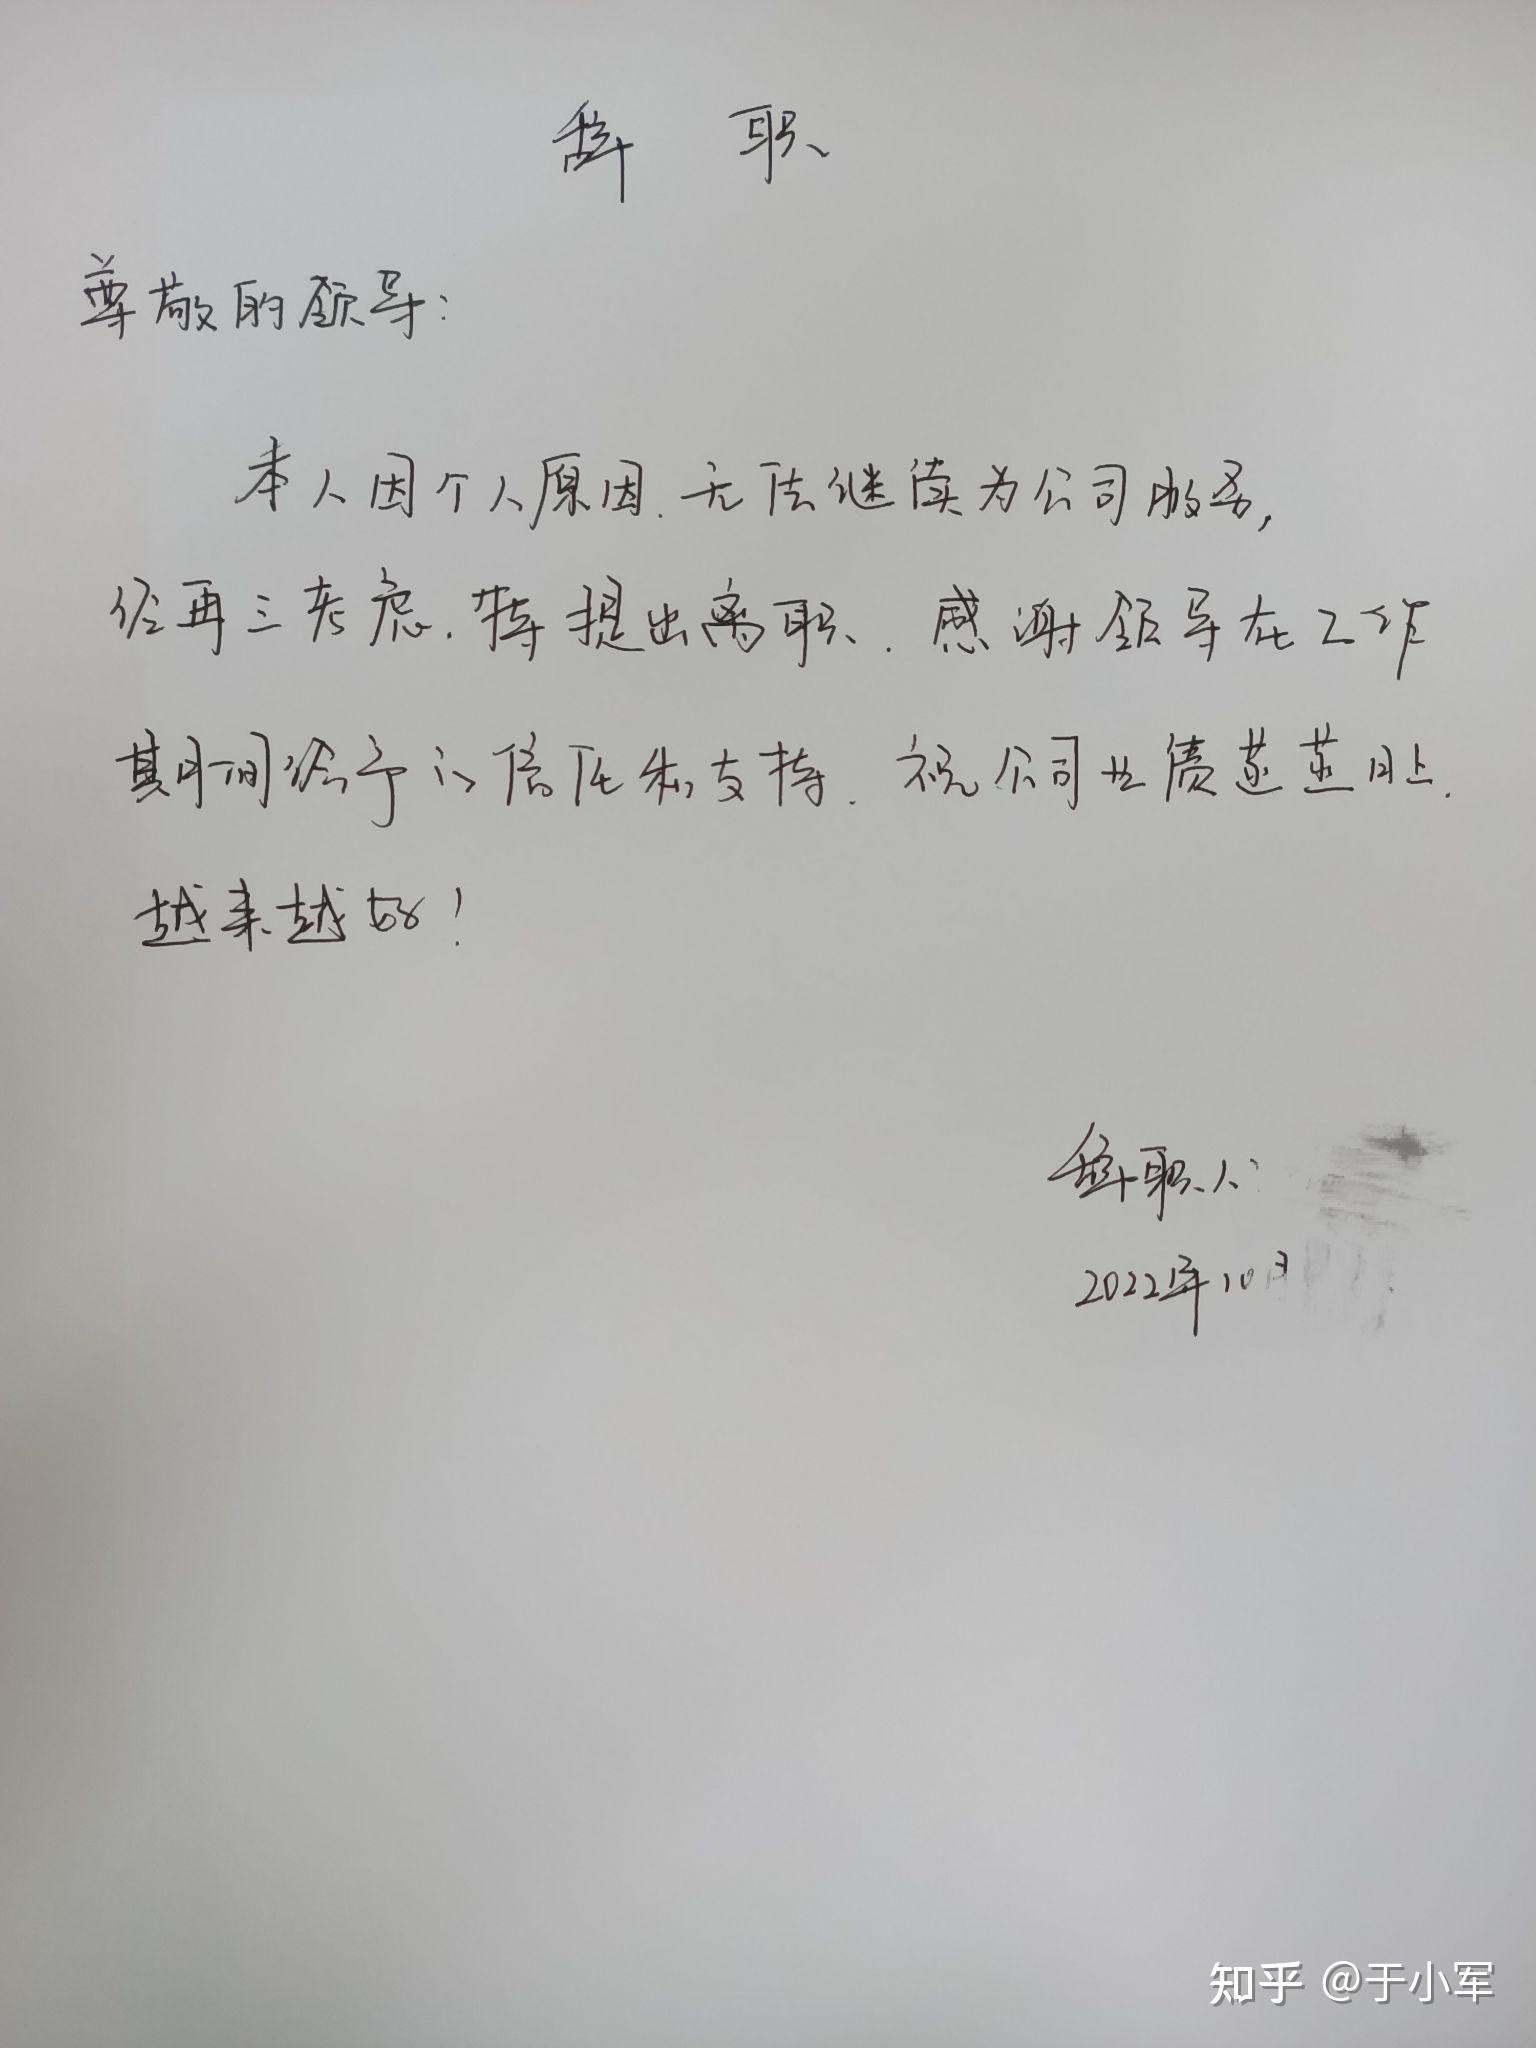 辞 职
尊敬的领导：
本人因个人原因.无法继续为公司服务,
经再三考虑.特提出离职.感谢领导在工作
期间给予的信任和支持.祝公司业绩蒸蒸日上.
越来越好！
辞职人：
2022年10月
知乎 @于小军